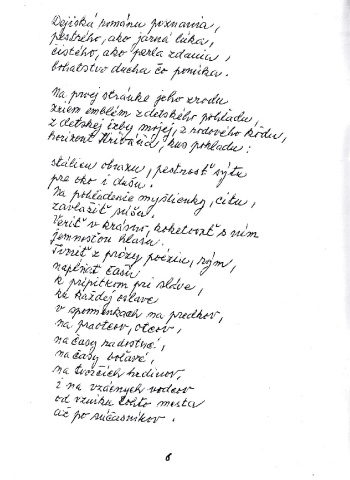 Dejiská románu poznania,
pestrého, ako jarná lúka,
čistého, ako perla zdania,
bohatstvo ducha čo ponúka.
Na prvej stránke jeho zrodu
zriem emblém z detského pohľadu,
z detskej izby mojej, z rodového kódu,
horizont Kriváňa, kus pokladu:
stálicu obrazu, pestrosť sýtu
pre oko i dušu.
Na pohladenie myšlienky, citu,
zavlažiť súšu.
Veriť v krásno, koketovať s ním
jemnosťou hlasu.
Tvoriť z prózy poéziu, rým,
napĺňať čašu
k prípitkom pri sláve,
ku každej oslave
v spomienkach na predkov,
na praotcov, otcov,
na časy radostné,
na časy boľavé,
na tvorčích hrdinov,
i na vzácnych vodcov
od vzniku tohto mesta
až po súčasníkov.
6